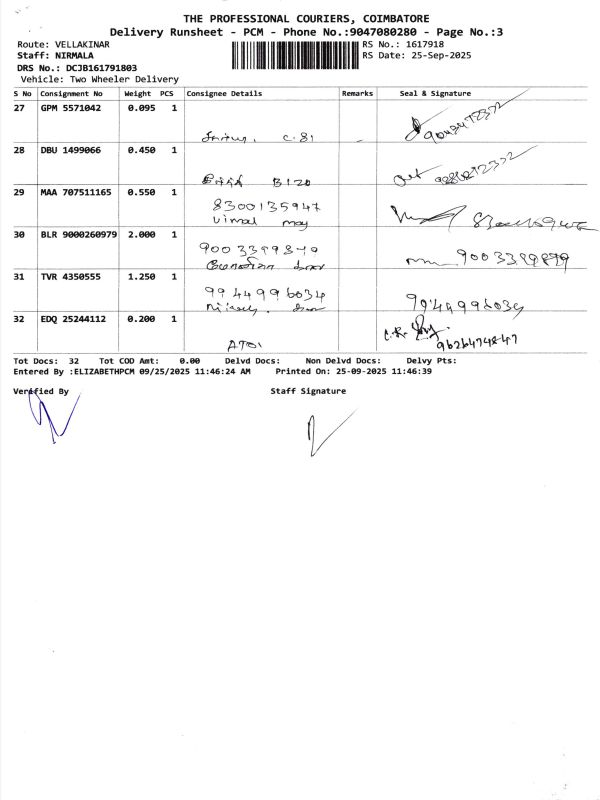 THE PROFESSIONAL COURIERS, COIMBATORE
Delivery Runsheet - PCM - Phone No.:9047080280 - Page No.:3
Route: VELLAKINAR RS No.: 1617918
Staff: NIRMALA RS Date: 25-Sep-2025
DRS No.: DCJB161791803
Vehicle: Two Wheeler Delivery
S No Consignment No Weight PCS Consignee Details Remarks Seal & Signature
27 GPM 5571042 0.095 1
C.81
28 DBU 1499066 0.450 1
B120
29 MAA 707511165 0.550 1
8300135947
vimal
30 BLR 9000260979 2.000 1
9003399879 9003399879
31 TVR 4350555 1.250 1
9944996034 9944996034
32 EDQ 25244112 0.200 1
9626474847
Tot Docs: 32 Tot COD Amt: 0.00 Delvd Docs: Non Delvd Docs: Delvy Pts:
Entered By :ELIZABETHPCM 09/25/2025 11:46:24 AM Printed On: 25-09-2025 11:46:39
Verified By Staff Signature